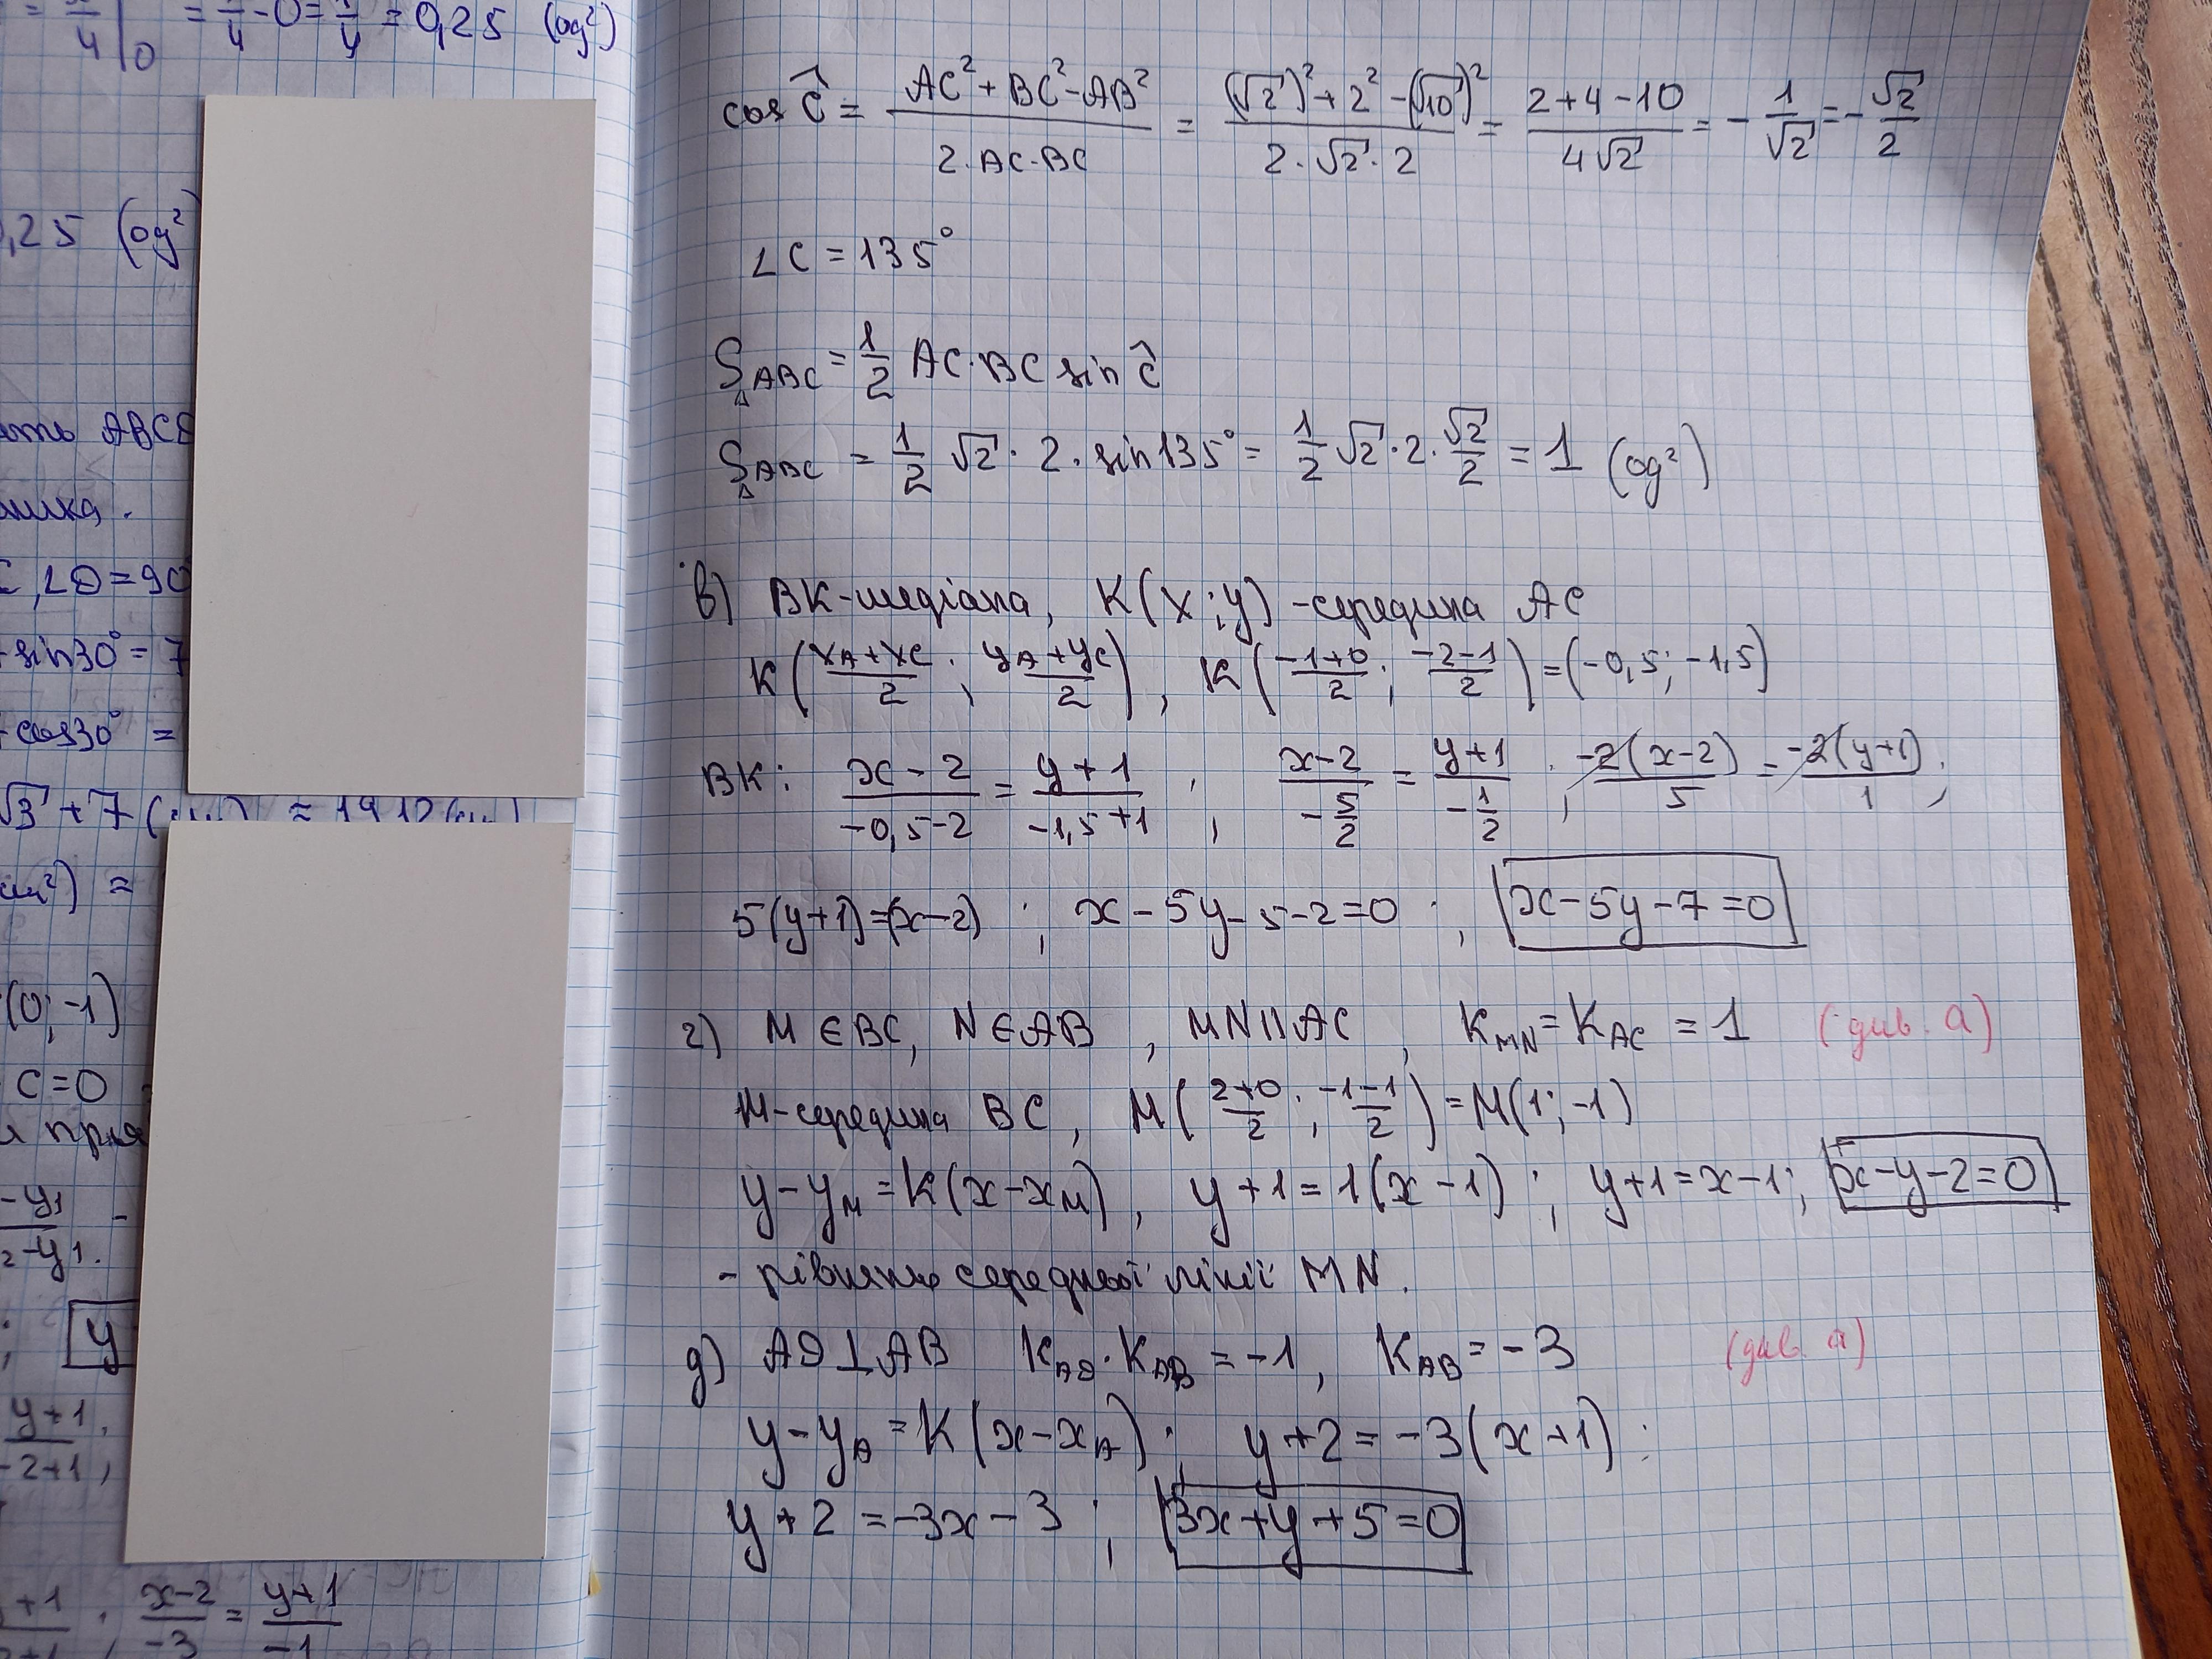 = 4 |0 = 1/4 - 0 = 1/4 = 0,25 (од²)
,25 (од²)
ABCD
∠D = 90
sin30° = 7
cos30° =
√3 + 7
см²) ≈
(0; -1)
C = 0
-y₁
₂-y₁.
y
y+1
-2+1,
+1, x-2/-3 = y+1/-1
cos Ĉ = (AC² + BC² - AB²)/(2·AC·BC) = ((√2)² + 2² - (√10)²)/(2·√2·2) = (2+4-10)/(4√2) = -1/√2 = -√2/2
∠C = 135°
S△ABC = 1/2 AC·BC sin Ĉ
S△ABC = 1/2 √2 · 2 · sin135° = 1/2 √2 · 2 · √2/2 = 1 (од²)
в) BK - медіана, K(x; y) - середина AC
K((xA+xC)/2; (yA+yC)/2), K((-1+0)/2; (-2-1)/2) = (-0,5; -1,5)
BK: (x-2)/(-0,5-2) = (y+1)/(-1,5+1); (x-2)/(-5/2) = (y+1)/(-1/2); -2(x-2)/5 = -2(y+1)/1;
5(y+1)=(x-2); x-5y-5-2=0; x-5y-7=0
г) M∈BC, N∈AB, MN||AC, KMN = KAC = 1 (див. а)
M-середина BC, M((2+0)/2; (-1-1)/2) = M(1; -1)
y-yM = K(x-xM), y+1=1(x-1); y+1=x-1; x-y-2=0
- рівняння середньої лінії MN.
д) AD⊥AB KAD·KAB = -1, KAB = -3 (див. а)
y-yA = K(x-xA); y+2=-3(x+1);
y+2=-3x-3; 3x+y+5=0